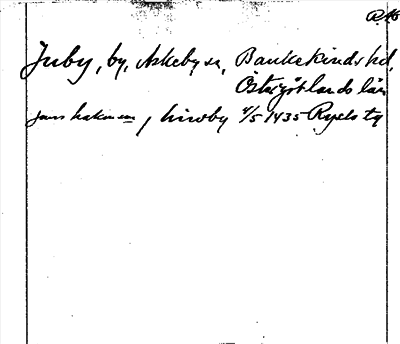 Juby, by, Askeby sn, Bankekinds hd,
Östergötlands län
jans hakonss, hinoby 4/5 1435 Ryels ty